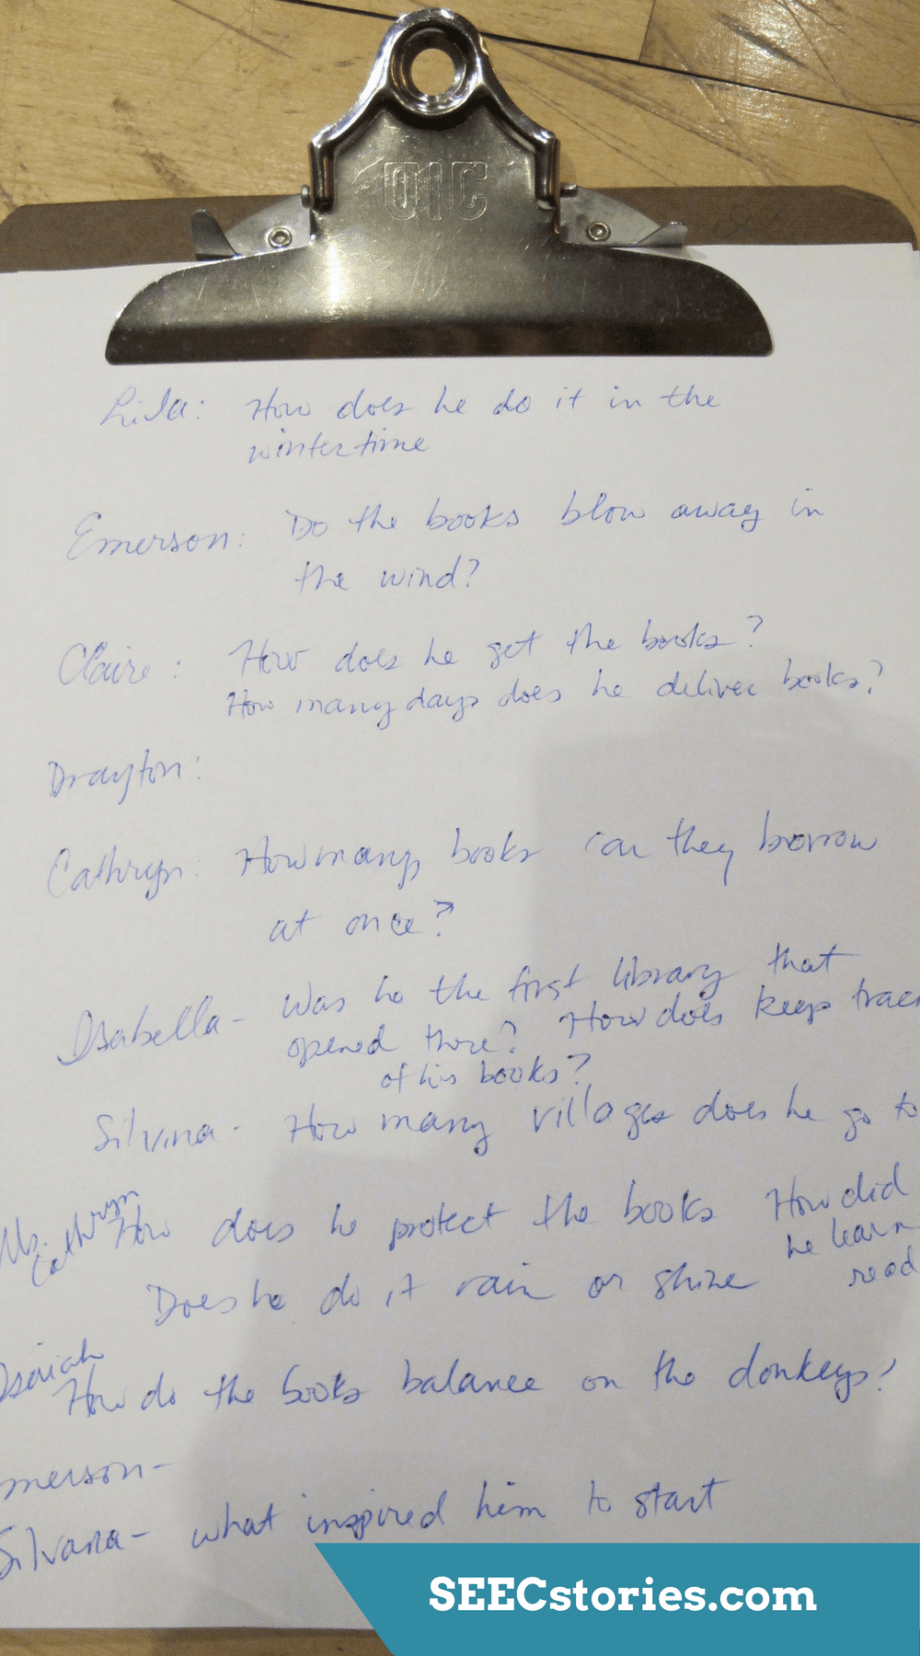 OIC
Lila: How does he do it in the
wintertime
Emerson: Do the books blow away in
the wind?
Claire: How does he get the books?
How many days does he deliver books?
Drayton:
Cathryn: How many books can they borrow
at once?
Isabella - Was he the first library that
opened there? How does keep trac
of his books?
Silvina - How many villages does he go to
Ms. Cathryn How does he protect the books How did
he learn
read
Does he do it rain or shine
Isaiah
How do the books balance on the donkeys?
merson-
Silvana- what inspired him to start
SEECstories.com